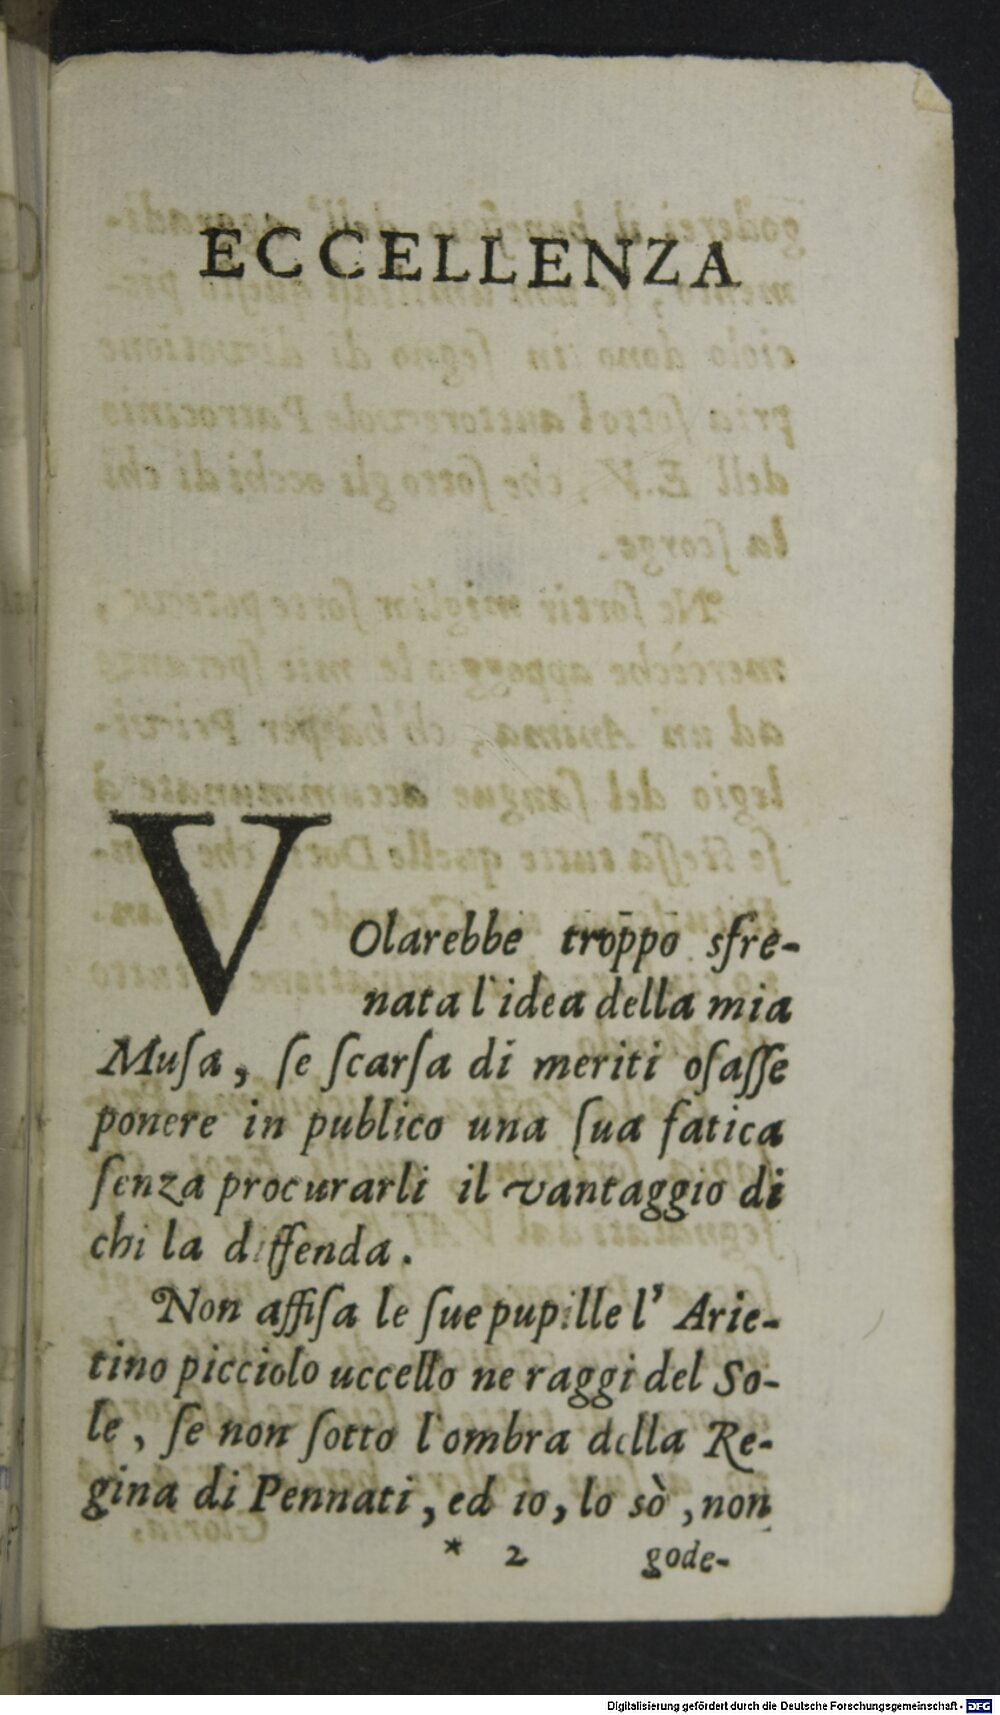 ECCELLENZA
VOlarebbe trop̄po sfre-
nata l'idea della mia
Muſa, ſe ſcarſa di meriti oſaſſe
ponere in publico una ſua fatica
ſenza procurarli il vantaggio di
chi la diffenda.
Non affiſa le ſue pupille l' Arie-
tino picciolo uccello ne raggi del So-
le, ſe non ſotto l'ombra della Re-
gina di Pennati, ed io, lo sò, non
* 2 gode-
Digitalisierung gefördert durch die Deutsche Forschungsgemeinschaft - DFG